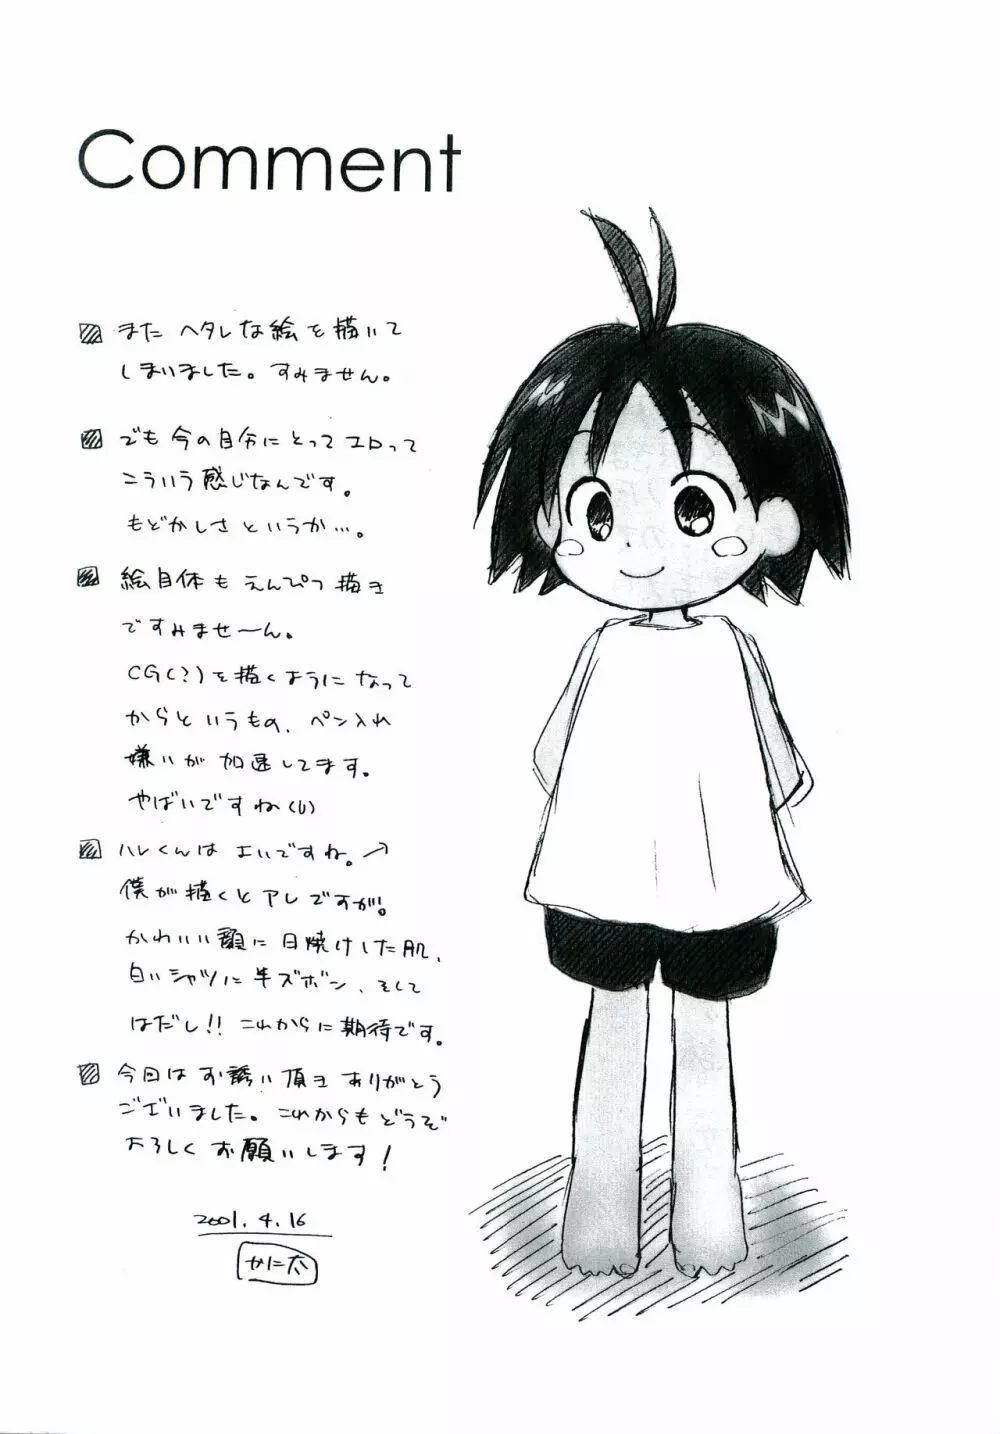 Comment
また ヘタレな絵を描いて
しまいました。すみません。
でも今の自分にとってエロって
こういう感じなんです。
もどかしさというか…。
絵自体もえんぴつ描き
ですみませ〜ん。
CG(?)を描くようになって
からというもの、ペン入れ
嫌いが加速してます。
やばいですね(U)
ハレくんはよいですね。→
僕が描くとアレですが。
かわいい顔に日焼けした肌、
白いシャツに半ズボン、そして
はだし!! これからに期待です。
今回はお誘い頂き ありがとう
ございました。これからもどうぞ
よろしくお願いします!
2001.4.16
かに太